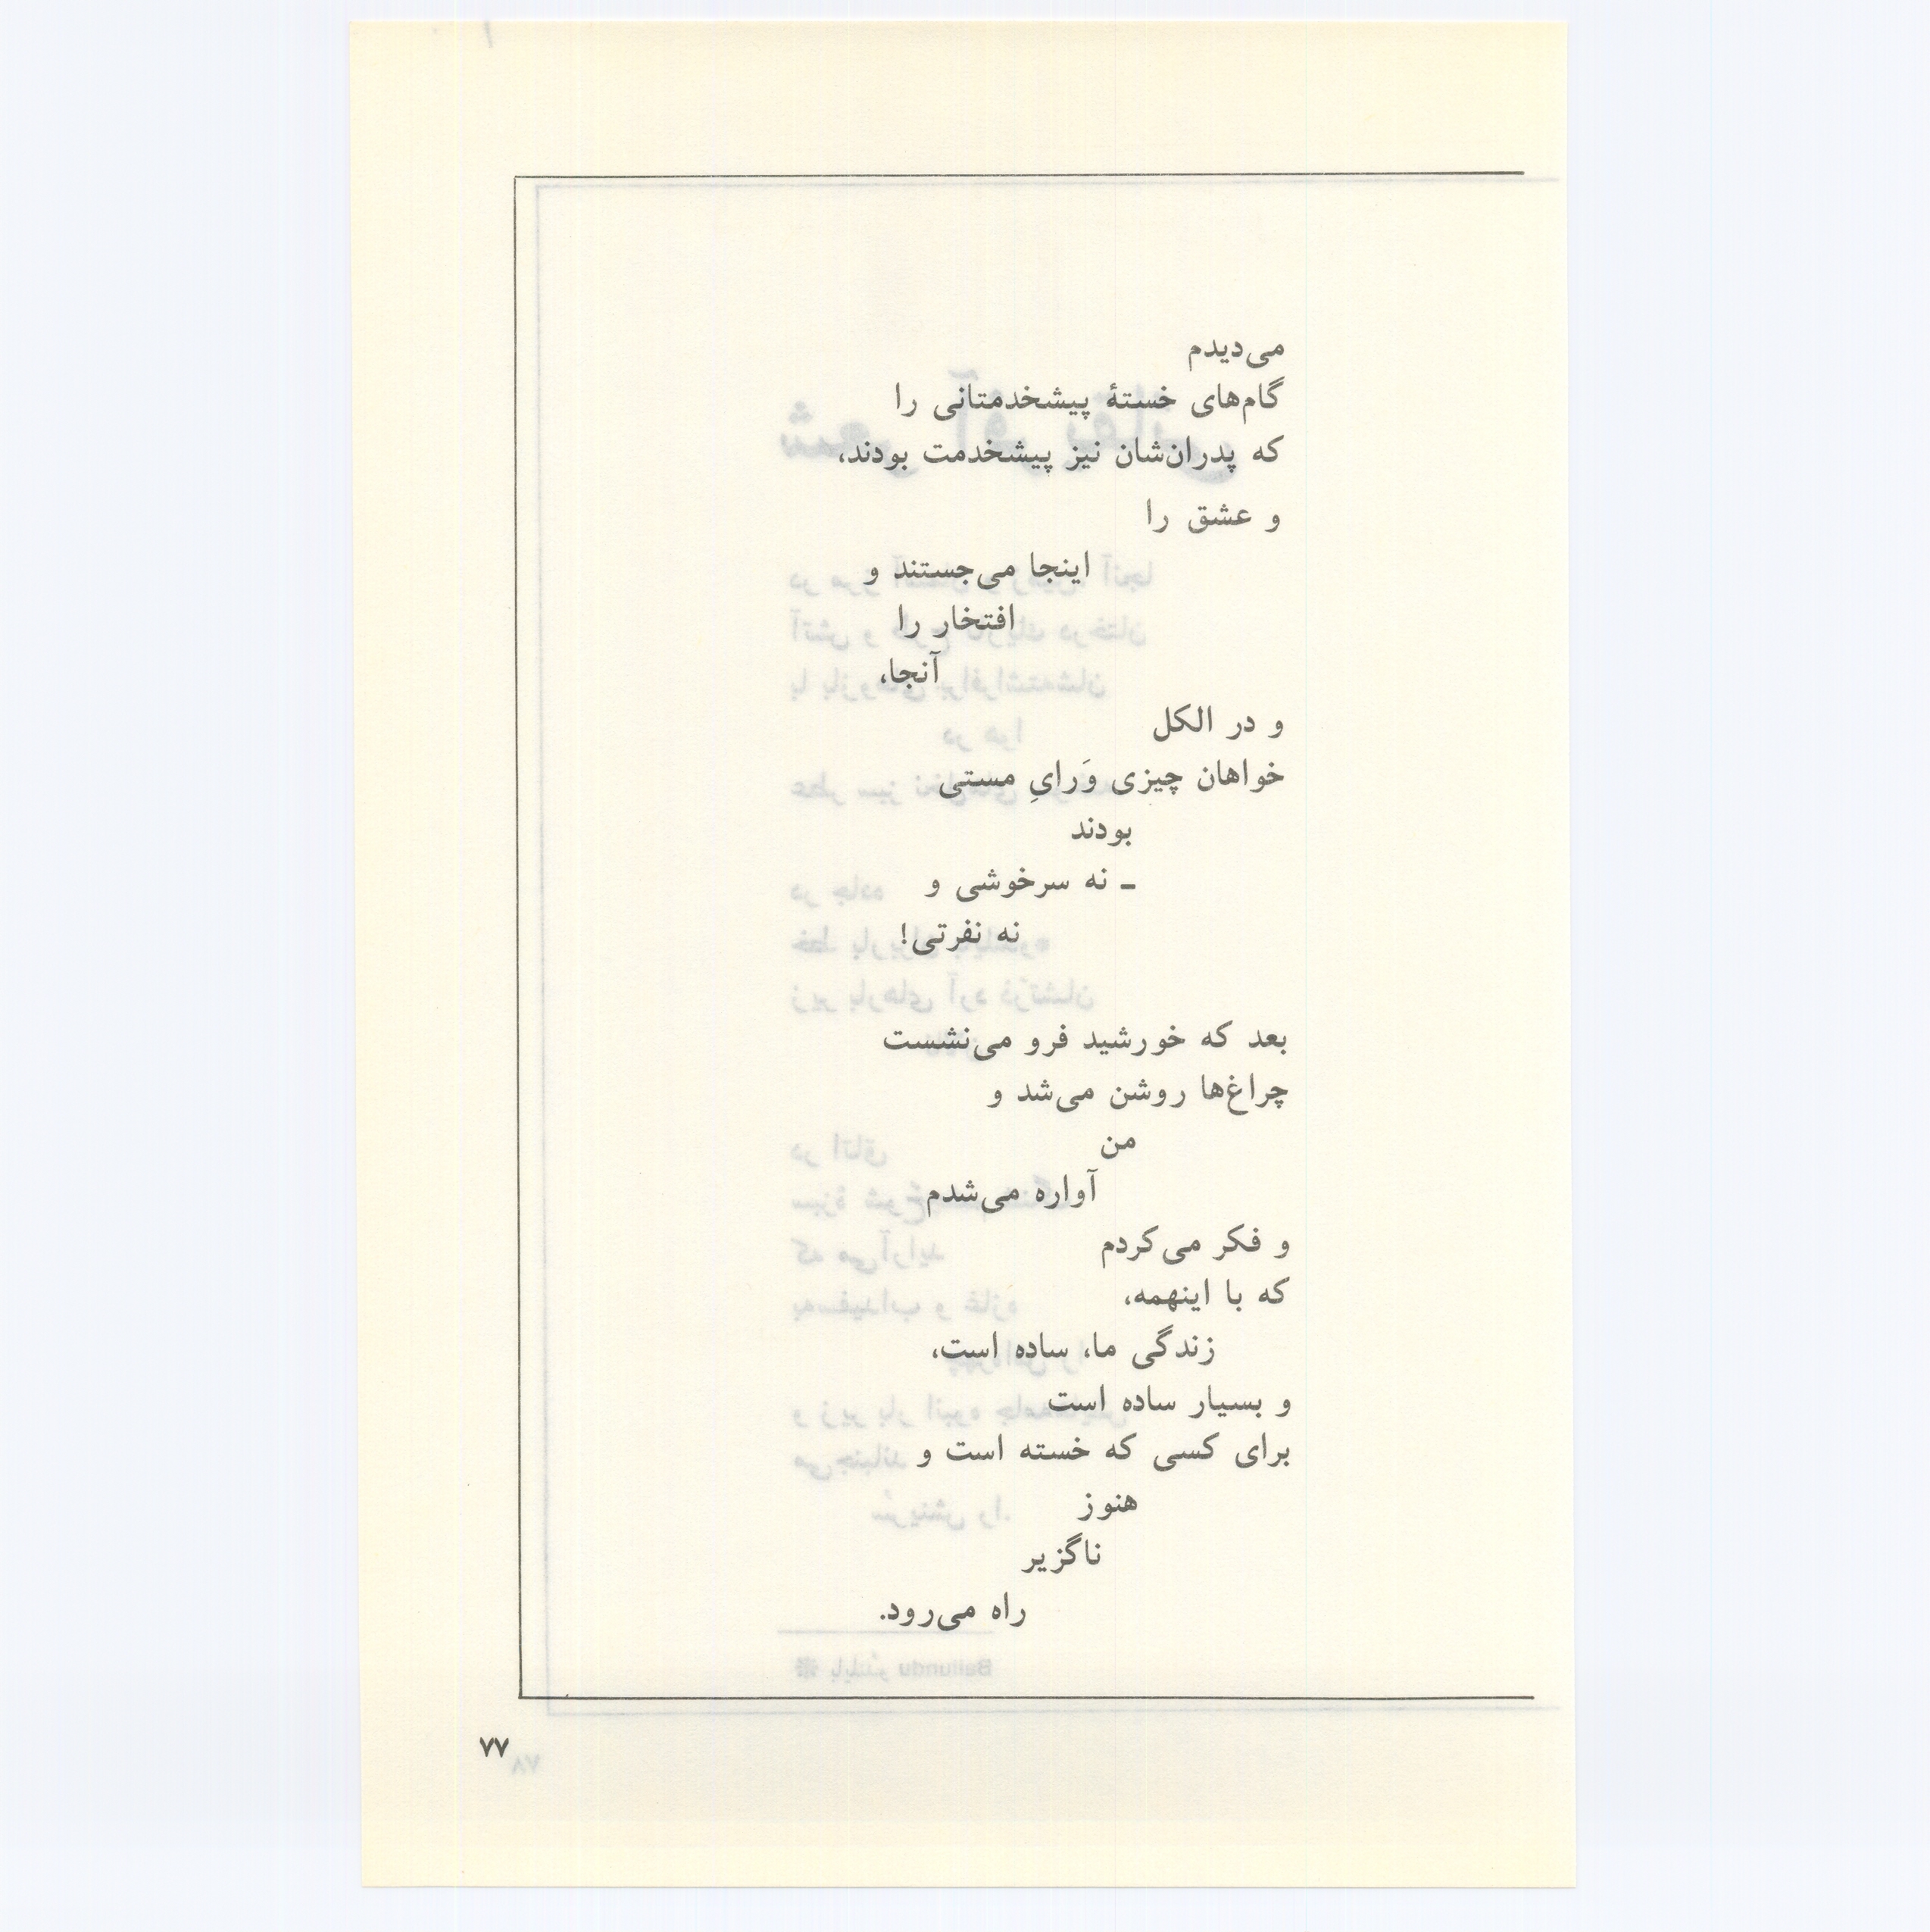 می‌دیدم
گام‌های خستهٔ پیشخدمتانی را
که پدران‌شان نیز پیشخدمت بودند،
و عشق را
اینجا می‌جستند و
افتخار را
آنجا،
و در الکل
خواهان چیزی وَرایِ مستی
بودند
ـ نه سرخوشی و
نه نفرتی!
بعد که خورشید فرو می‌نشست
چراغ‌ها روشن می‌شد و
من
آواره می‌شدم
و فکر می‌کردم
که با اینهمه،
زندگی ما، ساده است،
و بسیار ساده است
برای کسی که خسته است و
هنوز
ناگزیر
راه می‌رود.
۷۷